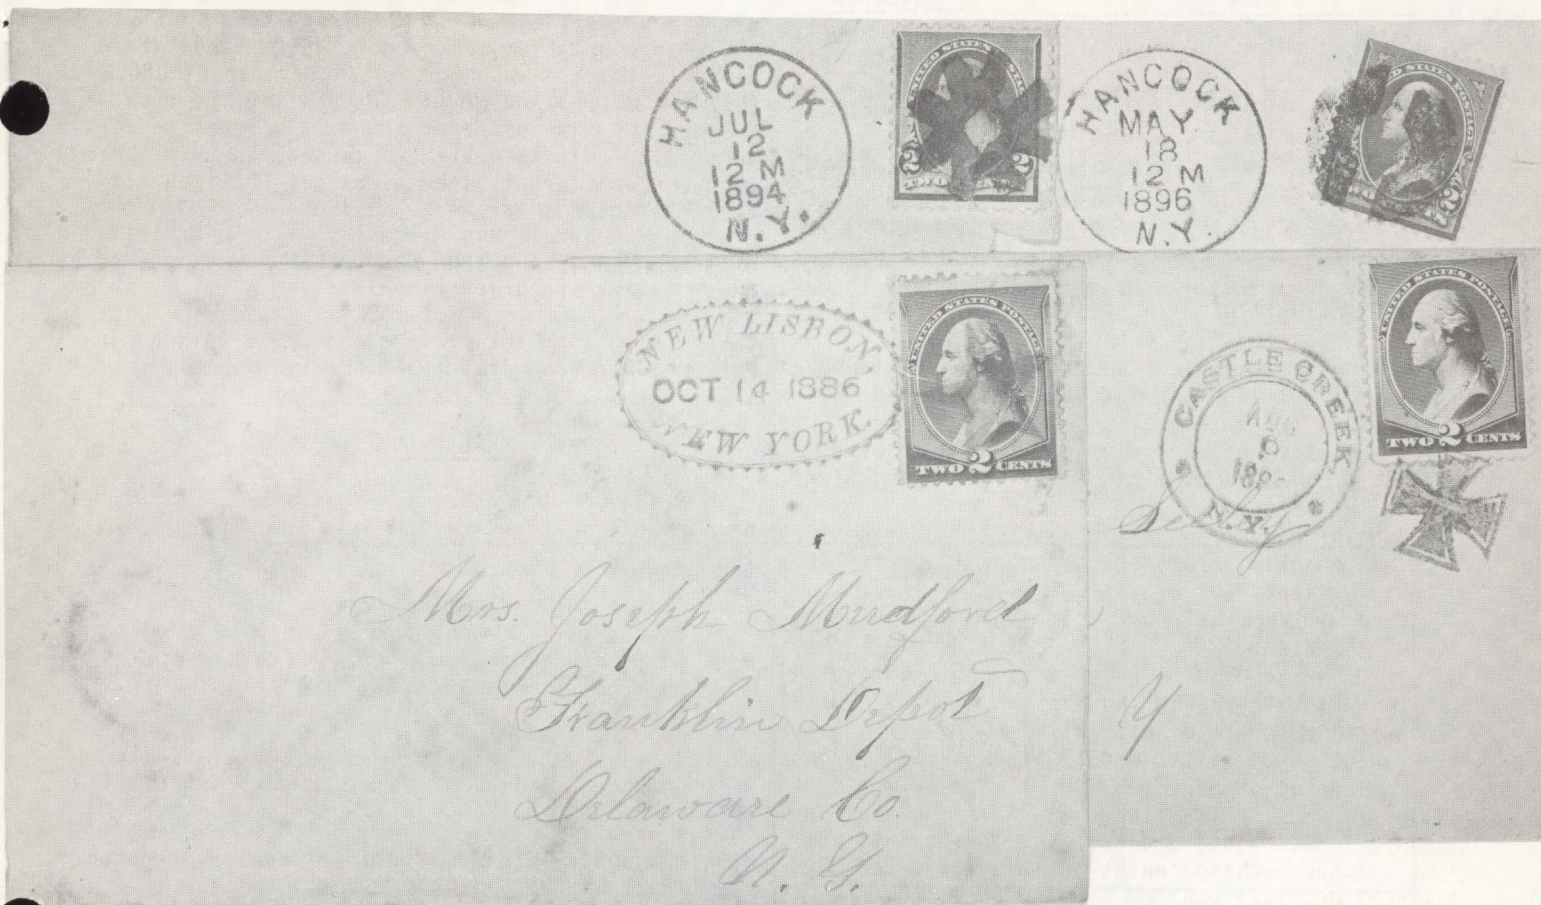 HANCOCK
JUL
12
12 M
1894
N.Y.
UNITED STATES
2 2
TWO
HANCOCK
MAY
18
12 M
1896
N.Y.
UNITED STATES POSTAGE
2
NEW LISBON,
OCT 14 1886
NEW YORK.
UNITED STATES POSTAGE
TWO 2 CENTS
CASTLE CREEK
AUG
N.Y.
UNITED STATES POSTAGE
TWO 2 CENTS
Mrs. Joseph Mudford
Franklin Depot
Delaware Co.
N. Y.
Y